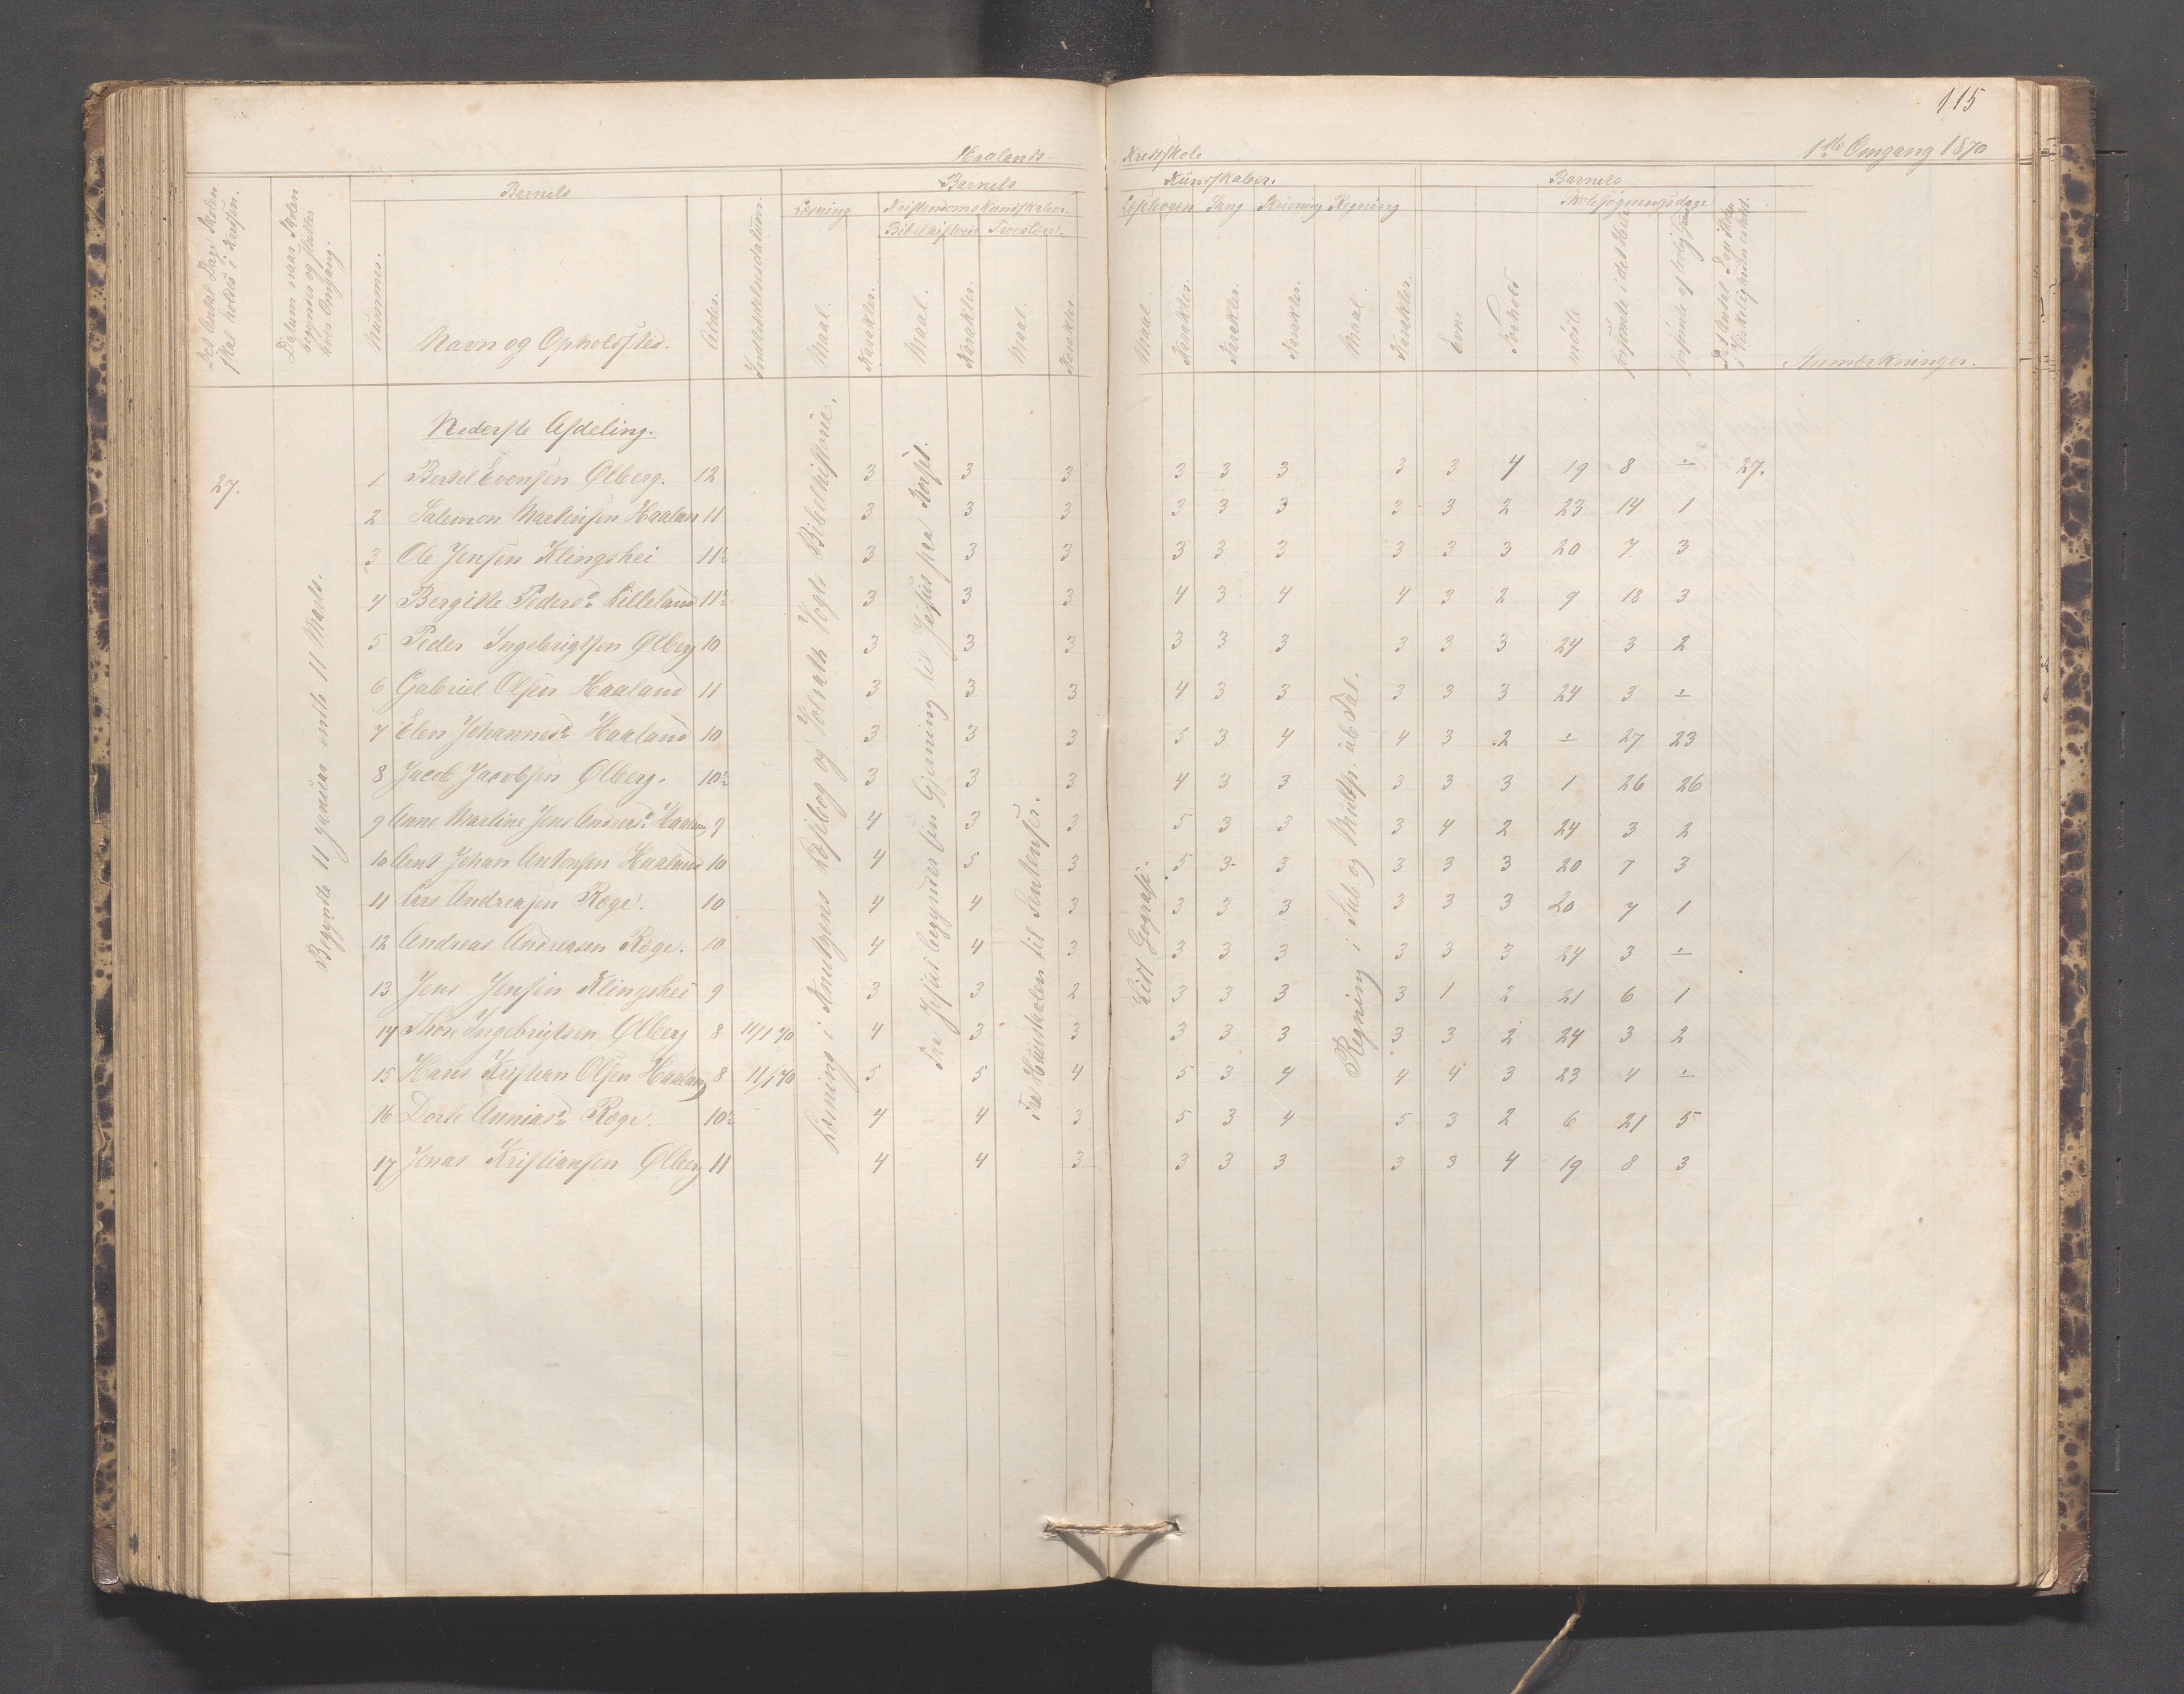 115
Haalands Kredsskole 1ste Omgang 1870
Det Antal Dage Skolen skal holdes i Kredsen.
Datum naar Skolen begynder og slutter hver Omgang.
Barnets
Nummer.
Navn og Opholdssted.
Alder.
Indtrædelsesdatum.
Barnets Kundskaber.
Læsning
Maal.
Karakter.
Kristendomskundskaber.
Bibelhistorie
Maal.
Karakter.
Troeslære.
Maal.
Karakter
Læsebogen
Maal.
Karakter.
Sang
Karakter.
Skrivning
Karakter.
Regning
Maal.
Karakter.
Barnets
Evne
Forhold
Skolesøgningsdage
mødte
forsømte i det Hele
forsømte af lovlig
Det Antal Dage Skolen i Virkeligheden er holdt.
Anmærkninger.
Nederste Afdeling.
27.
Begyndte 11 Januar endte 11 Marts.
Læsning i Knutzens Læsebog og Volrath Vogts Bibelhistorie.
Fra Jesus begynder sin Gjerning til Jesus paa Korset.
Fra Hüustavlen til Sentenser.
Lidt Geografi.
Regning i Sub og Multip. ub Tal.
1 Bertel Evensen Ølberg. 12 3 3 3 3 3 3 3 3 4 19 8 ÷ 27.
2 Salemon Martinsen Haalan 11 3 3 3 3 3 3 3 3 2 23 14 1
3 Ole Jensen Klingshei 11½ 3 3 3 3 3 3 3 3 3 20 7 3
4 Bergitte Pedersd. Lilleland 11½ 3 3 3 4 3 4 4 3 2 9 18 3
5 Peder Ingebrigtsen Ølberg 10 3 3 3 3 3 3 3 3 3 24 3 2
6 Gabriel Olsen Haaland 11 3 3 3 4 3 3 3 3 3 24 3 ÷
7 Elen Johannesd. Haaland 10 3 3 3 5 3 4 4 3 2 ÷ 27 23
8 Jacob Jacobsen Ølberg. 10½ 3 3 3 4 3 3 3 3 3 1 26 26
9 Anne Martine Jens Andreasd. Haaland 9 4 3 3 5 3 3 3 4 2 24 3 2
10 Arnt Johan Antonsen Haaland 10 4 5 3 5 3 3 3 3 3 20 7 3
11 Lars Andreasen Røge. 10 4 4 3 3 3 3 3 3 3 20 7 1
12 Andreas Andreasen Røge. 10 4 4 3 3 3 3 3 3 3 24 3 ÷
13 Jens Jensen Klingshei 9 3 3 2 3 3 3 3 1 2 21 6 1
14 Thore Ingebrigtsen Ølberg 8 11/1 70 4 3 3 3 3 3 3 3 2 24 3 2
15 Hans Kristian Olsen Haaland 8 11/1 70 5 5 4 5 3 4 4 4 3 23 4 ÷
16 Dorte Anniasd. Røge. 10½ 4 4 3 5 3 4 5 3 2 6 21 5
17 Jonas Kristiansen Ølberg 11 4 4 3 3 3 3 3 3 4 19 8 3